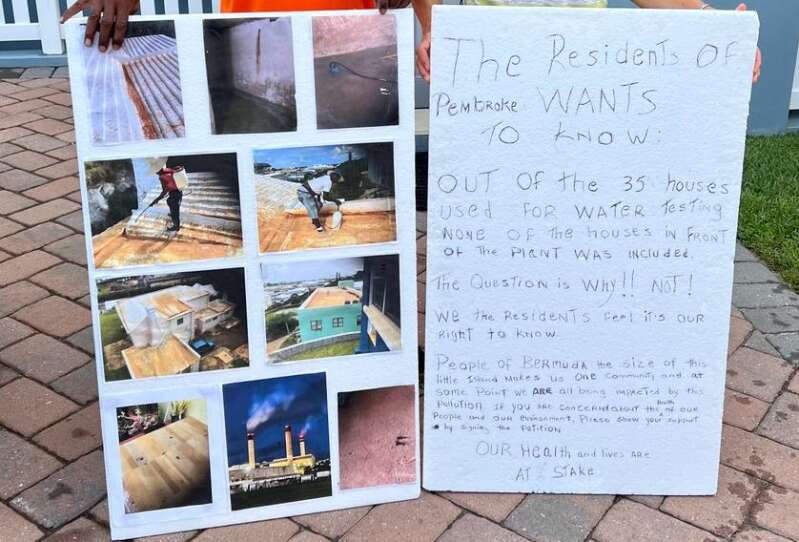 The Residents Of
Pembroke WANTS
TO KNOW:
OUT OF the 35 houses
used FOR WATER Testing
NONE OF the houses IN FRONT
OF the PLANT WAS INCLUDED.
The Question is Why!! NOT!
We the Residents Feel it's OUR
Right to KNOW
People of BERMUDA the size of this
little Island Makes us ONE Community and at
Some Point we ARE all being impacted by this
Pollution IF you are CONCERN about the Health OF OUR
People and OUR environment, Please show your support
by signing the Petition
OUR Health and lives ARE
AT STAKE